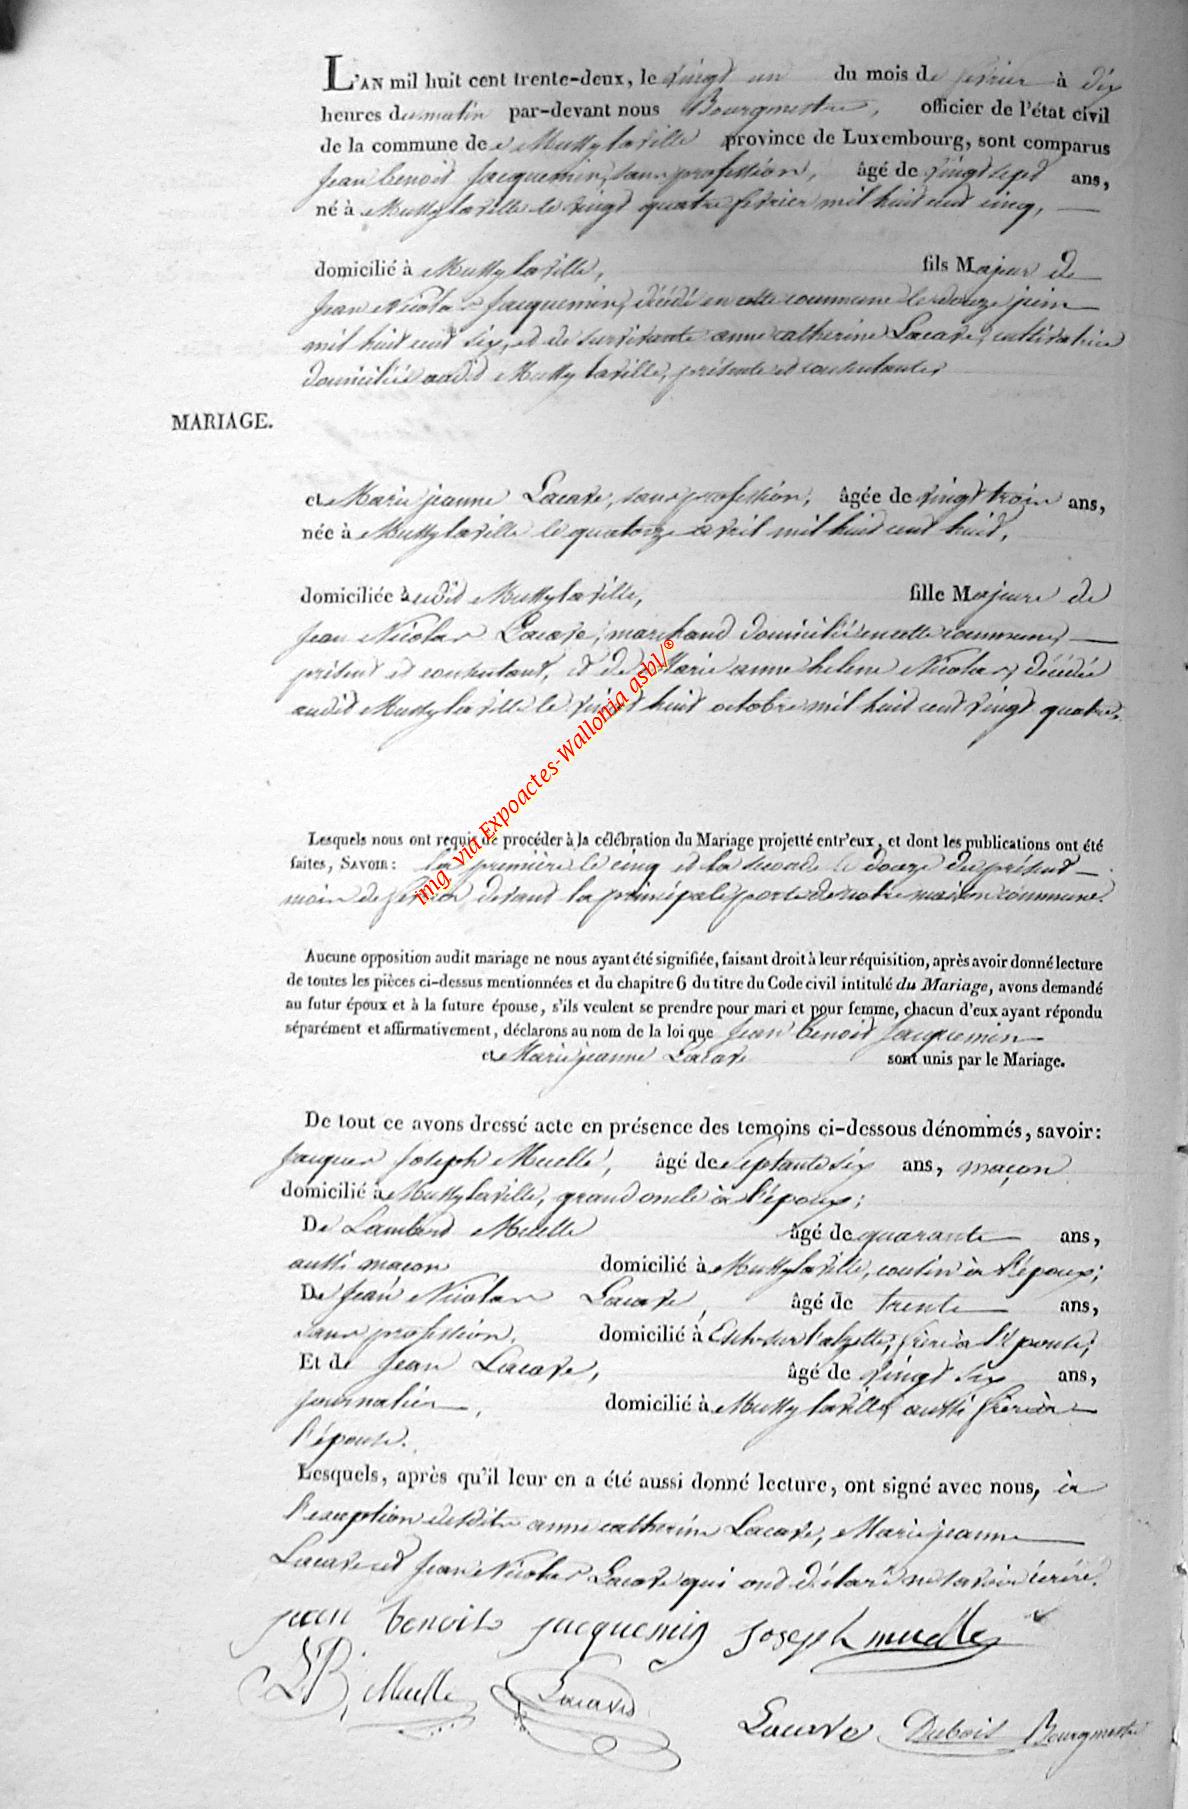 L'AN mil huit cent trente-deux, le vingt un du mois de février à dix
heures du matin par-devant nous Bourgmestre, officier de l'état civil
de la commune de Mussy la ville province de Luxembourg, sont comparus
Jean benoit Jacquemin, sans profession, âgé de vingt sept ans,
né à Mussy la ville le vingt quatre février mil huit cent cinq,
domicilié à Mussy la ville, fils Majeur de
Jean Nicolas Jacquemin, décédé en cette commune le douze juin
mil huit cent six, et de survivante anne catherine Lacave, cultivatrice
domiciliée audit Mussy la ville, présente et consentante,
MARIAGE.
et Marie jeanne Lacave, sans profession, âgée de vingt trois ans,
née à Mussy la ville le quatorze avril mil huit cent huit,
domiciliée audit Mussy la ville, fille Majeure de
Jean Nicolas Lacave, marchand domicilié en cette commune,
présent et consentant, et de Marie anne helene Nicolas, décédée
audit Mussy la ville le vingt huit octobre mil huit cent vingt quatre,
Lesquels nous ont requis de procéder à la célébration du Mariage projetté entr'eux, et dont les publications ont été
faites, SAVOIR : la première le cinq et la seconde le douze du présent
mois de février devant la principale porte de notre maison commune.
Aucune opposition audit mariage ne nous ayant été signifiée, faisant droit à leur réquisition, après avoir donné lecture
de toutes les pièces ci-dessus mentionnées et du chapitre 6 du titre du Code civil intitulé du Mariage, avons demandé
au futur époux et à la future épouse, s'ils veulent se prendre pour mari et pour femme, chacun d'eux ayant répondu
séparément et affirmativement, déclarons au nom de la loi que Jean benoit Jacquemin
et Marie jeanne Lacave sont unis par le Mariage.
De tout ce avons dressé acte en présence des temoins ci-dessous dénommés, savoir :
Jacques Joseph Muelle, âgé de septante six ans, maçon
domicilié à Mussy la ville, grand oncle à l'époux ;
De Lambert Muelle âgé de quarante ans,
aussi maçon domicilié à Mussy la ville, cousin à l'époux ;
De Jean Nicolas Lacave, âgé de trente ans,
sans profession, domicilié à Esch sur l'alzette, frère à l'épouse ;
Et de Jean Lacave, âgé de vingt six ans,
journalier, domicilié à Mussy la ville, aussi frère à
l'épouse.
Lesquels, après qu'il leur en a été aussi donné lecture, ont signé avec nous, à
l'exception desdits anne catherine Lacave, Marie jeanne
Lacave et Jean Nicolas Lacave qui ont déclaré ne savoir écrire.
jean benoit jacquemin joseph muelle
LB Muelle Lacave
Lacave Dubois Bourgmestre
img via Expoactes-Wallonia asbl/®